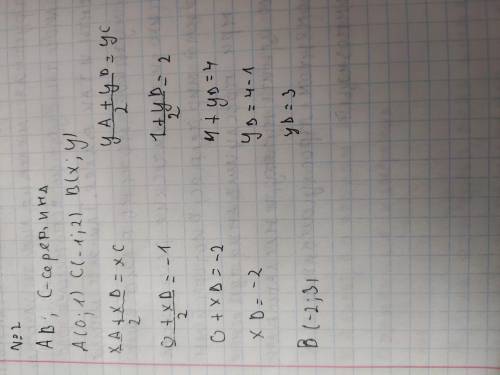 №2
AB; C-середина
A(0;1) C(-1;2) B(x;y)
xA+xB/2=xC yA+yB/2=yC
0+xB/2=-1 1+yB/2=2
0+xB=-2 1+yB=4
xB=-2 yB=4-1
yB=3
B(-2;3)